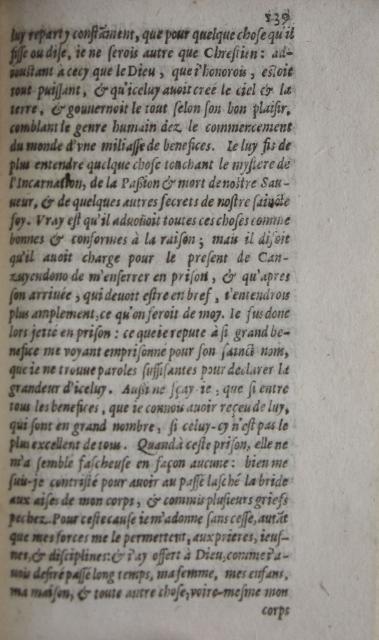 239
luy reparty constãment, que pour quelque chose qu'il
fisse ou dise, ie ne serois autre que Chrestien: ad-
ioustant à cecy que le Dieu, que i'honorois, estoit
tout puissant, & qu'iceluy auoit creé le ciel & la
terre, & gouuernoit le tout selon son bon plaisir,
comblant le genre humain dez le commencement
du monde d'vne miliasse de benefices. Ie luy fis de
plus entendre quelque chose touchant le mystere de
l'Incarnation, de la Passion & mort de nostre Sau-
ueur, & de quelques autres secrets de nostre saincte
foy. Vray est qu'il aduoüoit toutes ces choses comme
bonnes & conformes à la raison; mais il disoit
qu'il auoit charge pour le present de Can-
zuyendono de m'enserrer en prison, & qu'apres
son arriuée, qui deuoit estre en bref, i'entendrois
plus amplement, ce qu'on feroit de moy. Ie fus donc
lors jetté en prison: ce que ie repute à si grand be-
nefice me voyant emprisonné pour son sainct nom,
que ie ne trouue paroles suffisantes pour declarer la
grandeur d'iceluy. Aussi ne sçay-ie, que si entre
tous les benefices, que ie connois auoir reçeu de luy,
qui sont en grand nombre, si celuy-cy n'est pas le
plus excellent de tous. Quand à ceste prison, elle ne
m'a semblé fascheuse en façon aucune: bien me
suis-je contristé pour auoir au passé lasché la bride
aux aises de mon corps, & commis plusieurs griefs
pechez. Pour ceste cause ie m'adonne sans cesse, autãt
que mes forces me le permettent, aux prieres, ieus-
nes, & disciplines: & i'ay offert à Dieu, comme i'a-
uois desiré passé long temps, ma femme, mes enfans,
ma maison, & toute autre chose, voire-mesme mon
corps